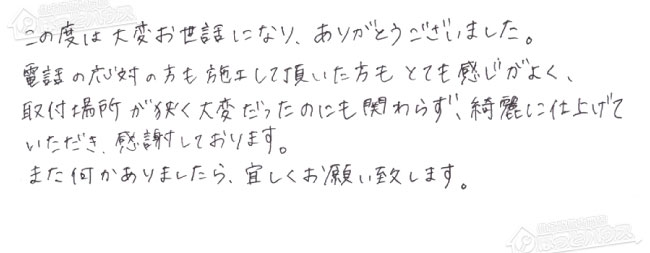 この度は大変お世話になり、ありがとうございました。
電話の応対の方も施工して頂いた方もとても感じがよく、
取付場所が狭く大変だったのにも関わらず、綺麗に仕上げて
いただき、感謝しております。
また何かありましたら、宜しくお願い致します。